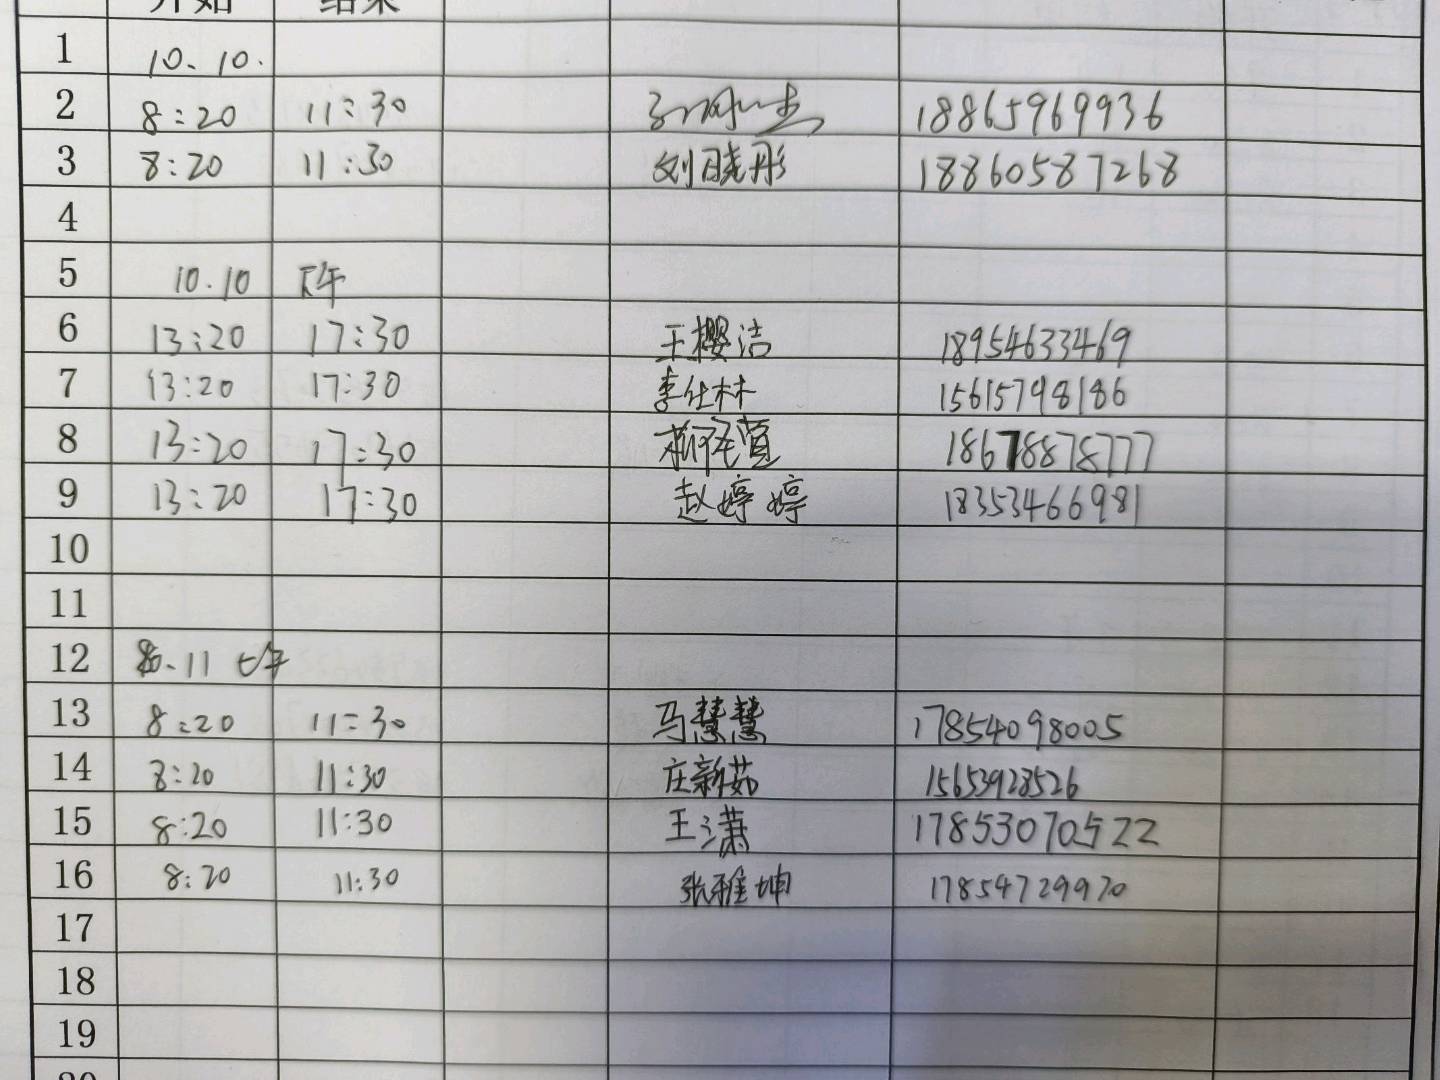 开始 结束
1 10.10.
2 8:20 11:30 18865969936
3 8:20 11:30 刘晓彤 18860587268
4
5 10.10 下午
6 13:20 17:30 王樱洁 18954633469
7 13:20 17:30 李仕林 15615798186
8 13:20 17:30 18678878777
9 13:20 17:30 赵婷婷 18353466981
10
11
12 10.11 上午
13 8:20 11:30 马慧慧 17854098005
14 8:20 11:30 庄新茹 15653928526
15 8:20 11:30 王潇 17853070522
16 8:20 11:30 张雅坤 17854729970
17
18
19
20